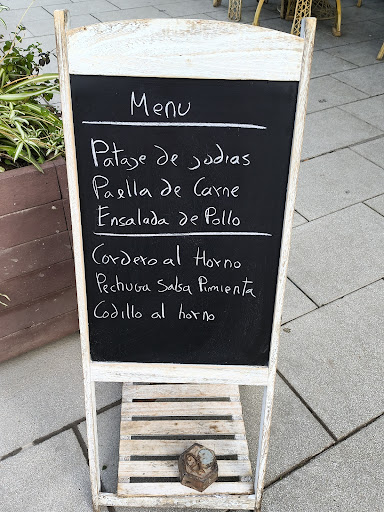 Menu
Pataje de judias
Paella de Carne
Ensalada de Pollo
Cordero al Horno
Pechuga Salsa Pimienta
Codillo al horno